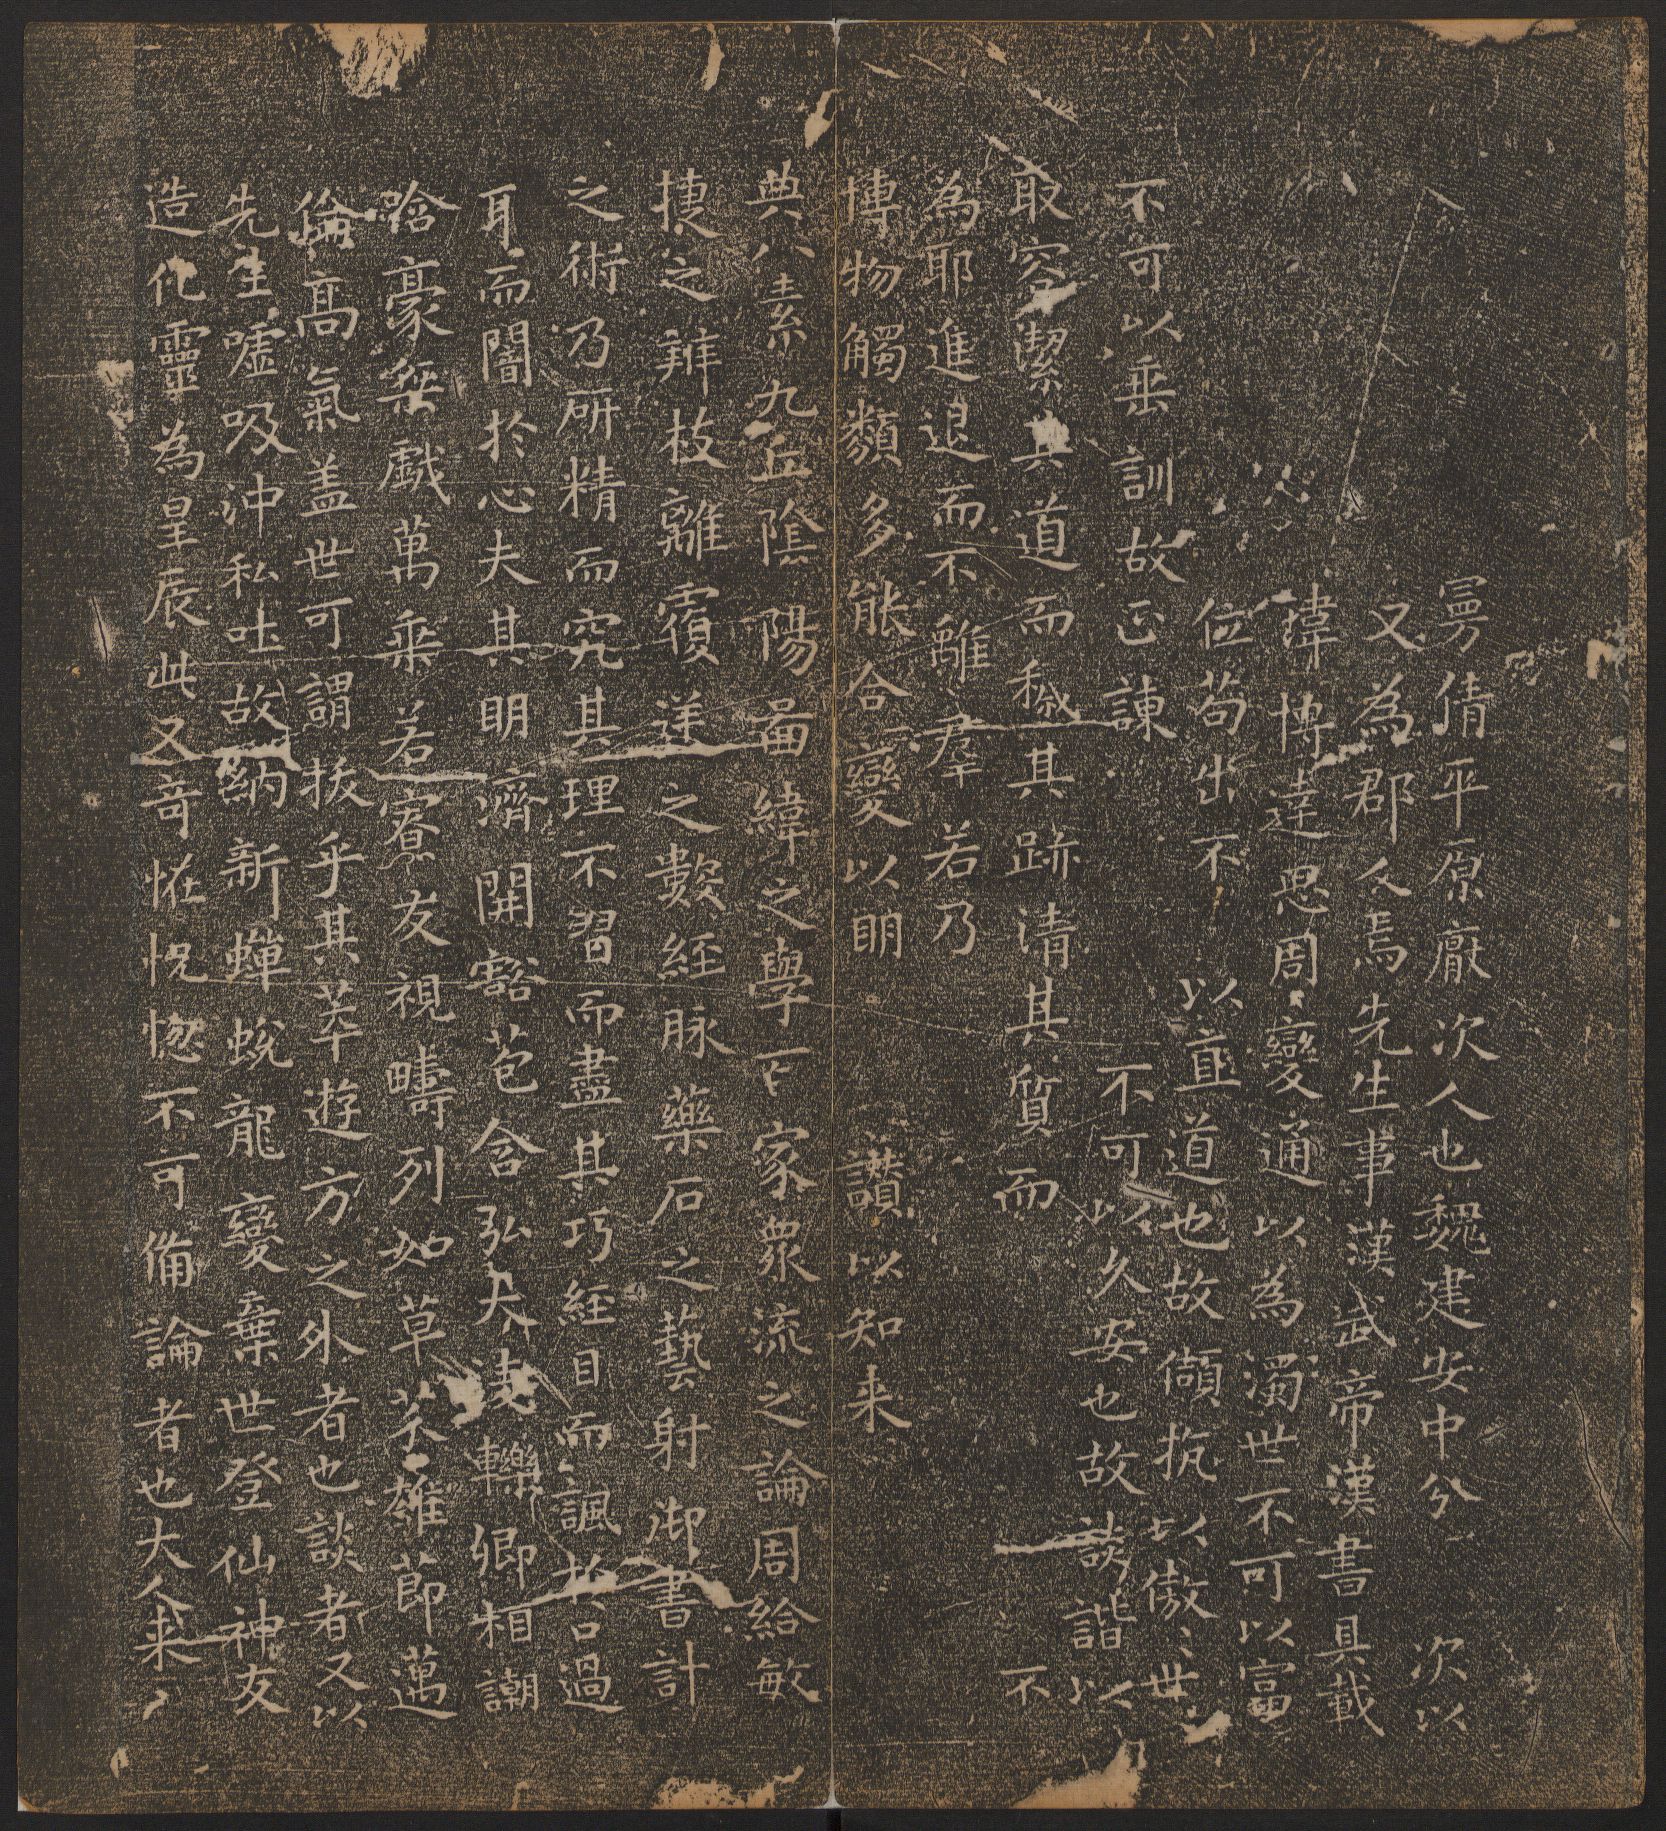 曼倩平原厭次人也魏建安中分次以
又為郡人焉先生事漢武帝漢書具載
瑋博達思周變通以為濁世不可以富
位苟出不以直道也故頡抗以傲世
不可以垂訓故正諫不可以久安也故談諧以
取容潔其道而穢其跡清其質而不
為耶進退而不離羣若乃
博物觸類多能合變以明讚以知来
典八素九丘陰陽啚緯之學百家衆流之論周給敏
捷之辨枝離覆逆之數經脉藥石之藝射御書計
之術乃研精而究其理不習而盡其巧經目而諷於口過
耳而闇於心夫其明濟開豁苞含弘大淩轢卿相謿
哈豪桀戲萬乘若寮友視疇列如草芥雄節邁
倫高氣盖世可謂拔乎其萃遊方之外者也談者又以
先生噓吸沖和吐故納新蟬蛻龍變棄世登仙神友
造化靈為星辰此又奇恠怳惚不可備論者也大人来